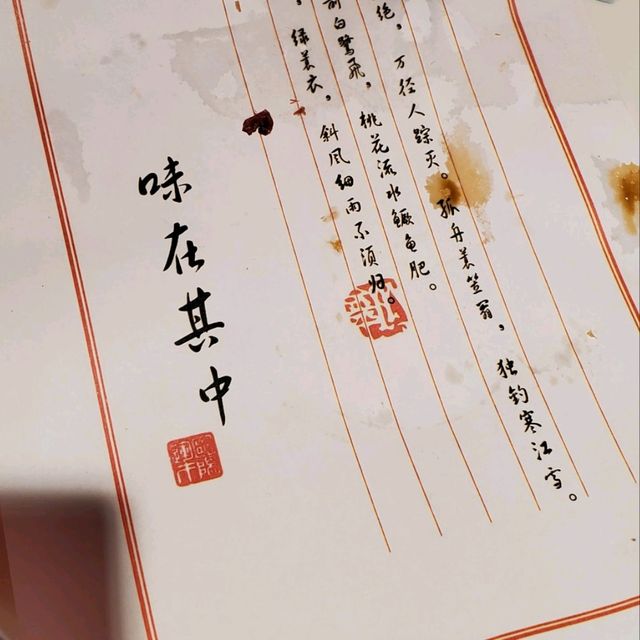 绝，万径人踪灭。孤舟蓑笠翁，独钓寒江雪。
前白鹭飞，桃花流水鳜鱼肥。
，绿蓑衣，斜风细雨不须归。
味在其中